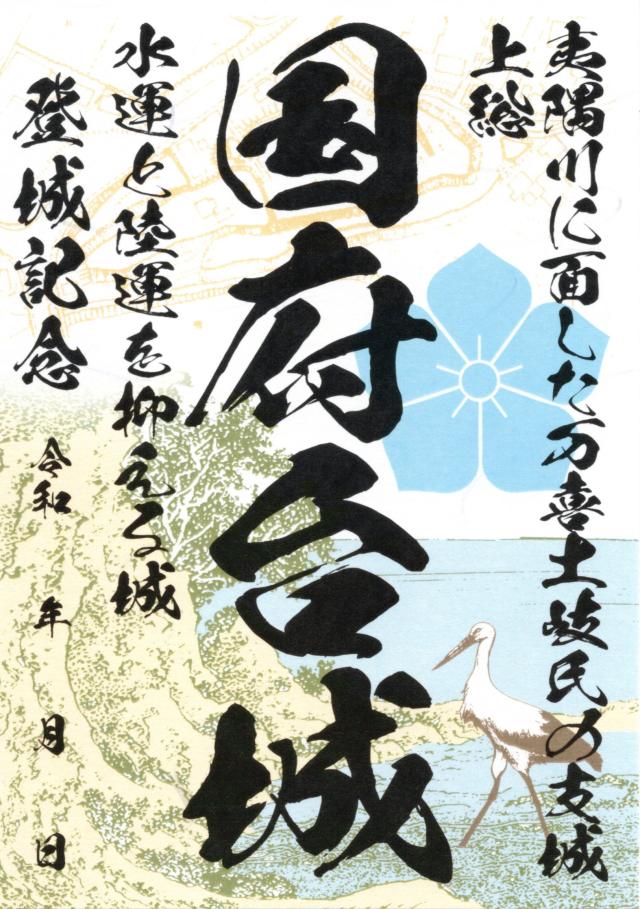 夷隅川に面した万喜土岐氏の支城
上総
国府台城
水運と陸運を抑える城
登城記念
令和 年 月 日